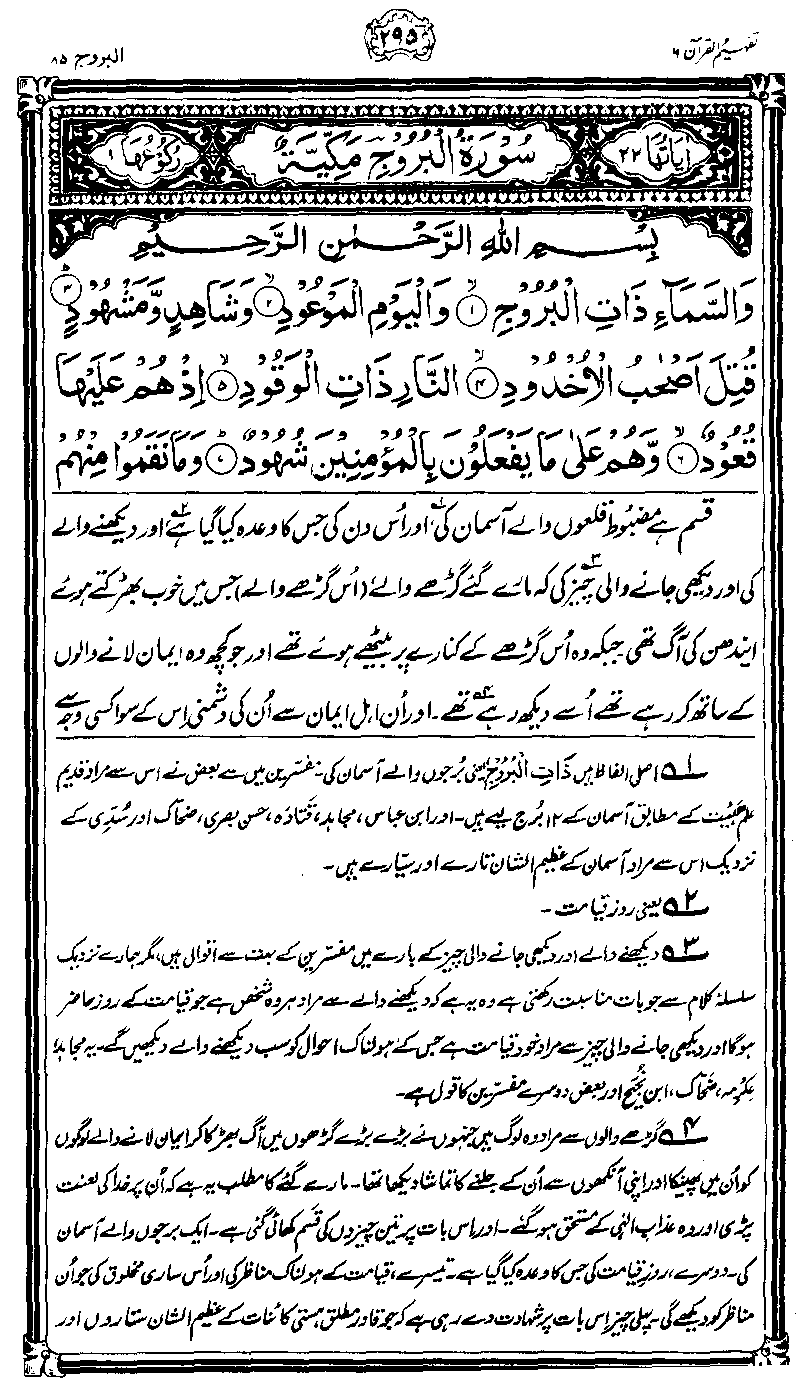 تفہیم القرآن ۶
۲۹۵
البروج ۸۵
اٰیَاتُهَا ۲۲
سُوْرَةُ الْبُرُوْجِ مَكِّيَّةٌ
رُكُوْعُهَا ۱
بِسْمِ اللهِ الرَّحْمٰنِ الرَّحِيْمِ
وَالسَّمَآءِ ذَاتِ الْبُرُوْجِ ۙ۱ وَالْيَوْمِ الْمَوْعُوْدِ ۙ۲ وَشَاهِدٍ وَّمَشْهُوْدٍ ؕ۳
قُتِلَ اَصْحٰبُ الْاُخْدُوْدِ ۙ۴ النَّارِ ذَاتِ الْوَقُوْدِ ۙ۵ اِذْ هُمْ عَلَيْهَا
قُعُوْدٌ ۙ۶ وَّهُمْ عَلٰى مَا يَفْعَلُوْنَ بِالْمُؤْمِنِيْنَ شُهُوْدٌ ؕ۷ وَمَا نَقَمُوْا مِنْهُمْ
قسم ہے مضبوط قلعوں والے آسمان کی،۱ اور اُس دن کی جس کا وعدہ کیا گیا ہے۲ اور دیکھنے والے
کی اور دیکھی جانے والی چیز کی۳ کہ مارے گئے گڑھے والے، (اُس گڑھے والے) جس میں خوب بھڑکتے ہوئے
ایندھن کی آگ تھی جبکہ وہ اُس گڑھے کے کنارے پر بیٹھے ہوئے تھے اور جو کچھ وہ ایمان لانے والوں
کے ساتھ کر رہے تھے اُسے دیکھ رہے تھے۴۔ اور اُن اہلِ ایمان سے اُن کی دشمنی اِس کے سوا کسی وجہ سے
۱ اصل الفاظ ہیں ذَاتِ الْبُرُوْجِ یعنی بُرجوں والے آسمان کی۔ مفسّرین میں سے بعض نے اس سے مراد قدیم
علم ہیئت کے مطابق آسمان کے ۱۲ بُرج لیے ہیں۔ اور ابن عباس، مجاہد، قتادہ، حسن بصری، ضحاک اور سُدّی کے
نزدیک اس سے مراد آسمان کے عظیم الشان تارے اور سیّارے ہیں۔
۲ یعنی روزِ قیامت۔
۳ دیکھنے والے اور دیکھی جانے والی چیز کے بارے میں مفسّرین کے بہت سے اقوال ہیں، مگر ہمارے نزدیک
سلسلۂ کلام سے جو بات مناسبت رکھتی ہے وہ یہ ہے کہ دیکھنے والے سے مراد ہر وہ شخص ہے جو قیامت کے روز حاضر
ہوگا اور دیکھی جانے والی چیز سے مراد خود قیامت ہے جس کے ہولناک احوال کو سب دیکھنے والے دیکھیں گے۔ یہ مجاہد،
عِکرِمہ، ضحّاک، ابن نُجَیح اور بعض دوسرے مفسّرین کا قول ہے۔
۴ گڑھے والوں سے مراد وہ لوگ ہیں جنہوں نے بڑے بڑے گڑھوں میں آگ بھڑکا کر ایمان لانے والے لوگوں
کو اُن میں پھینکا اور اپنی آنکھوں سے اُن کے جلنے کا تماشا دیکھا تھا۔ مارے گئے کا مطلب یہ ہے کہ اُن پر خدا کی لعنت
پڑی اور وہ عذابِ الٰہی کے مستحق ہو گئے۔ اور اِس بات پر تین چیزوں کی قَسم کھائی گئی ہے۔ ایک برجوں والے آسمان
کی۔ دوسرے، روزِ قیامت کی جس کا وعدہ کیا گیا ہے۔ تیسرے، قیامت کے ہولناک مناظر کی اور اُس ساری مخلوق کی جو اُن
مناظر کو دیکھے گی۔ پہلی چیز اِس بات پر شہادت دے رہی ہے کہ جو قادرِ مطلق ہستی کائنات کے عظیم الشان ستاروں اور